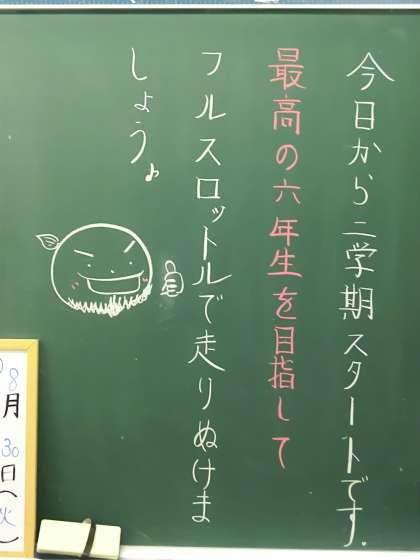 今日から二学期スタートです。
最高の六年生を目指して
フルスロットルで走りぬけま
しょう♪
8
月
30
日(火)